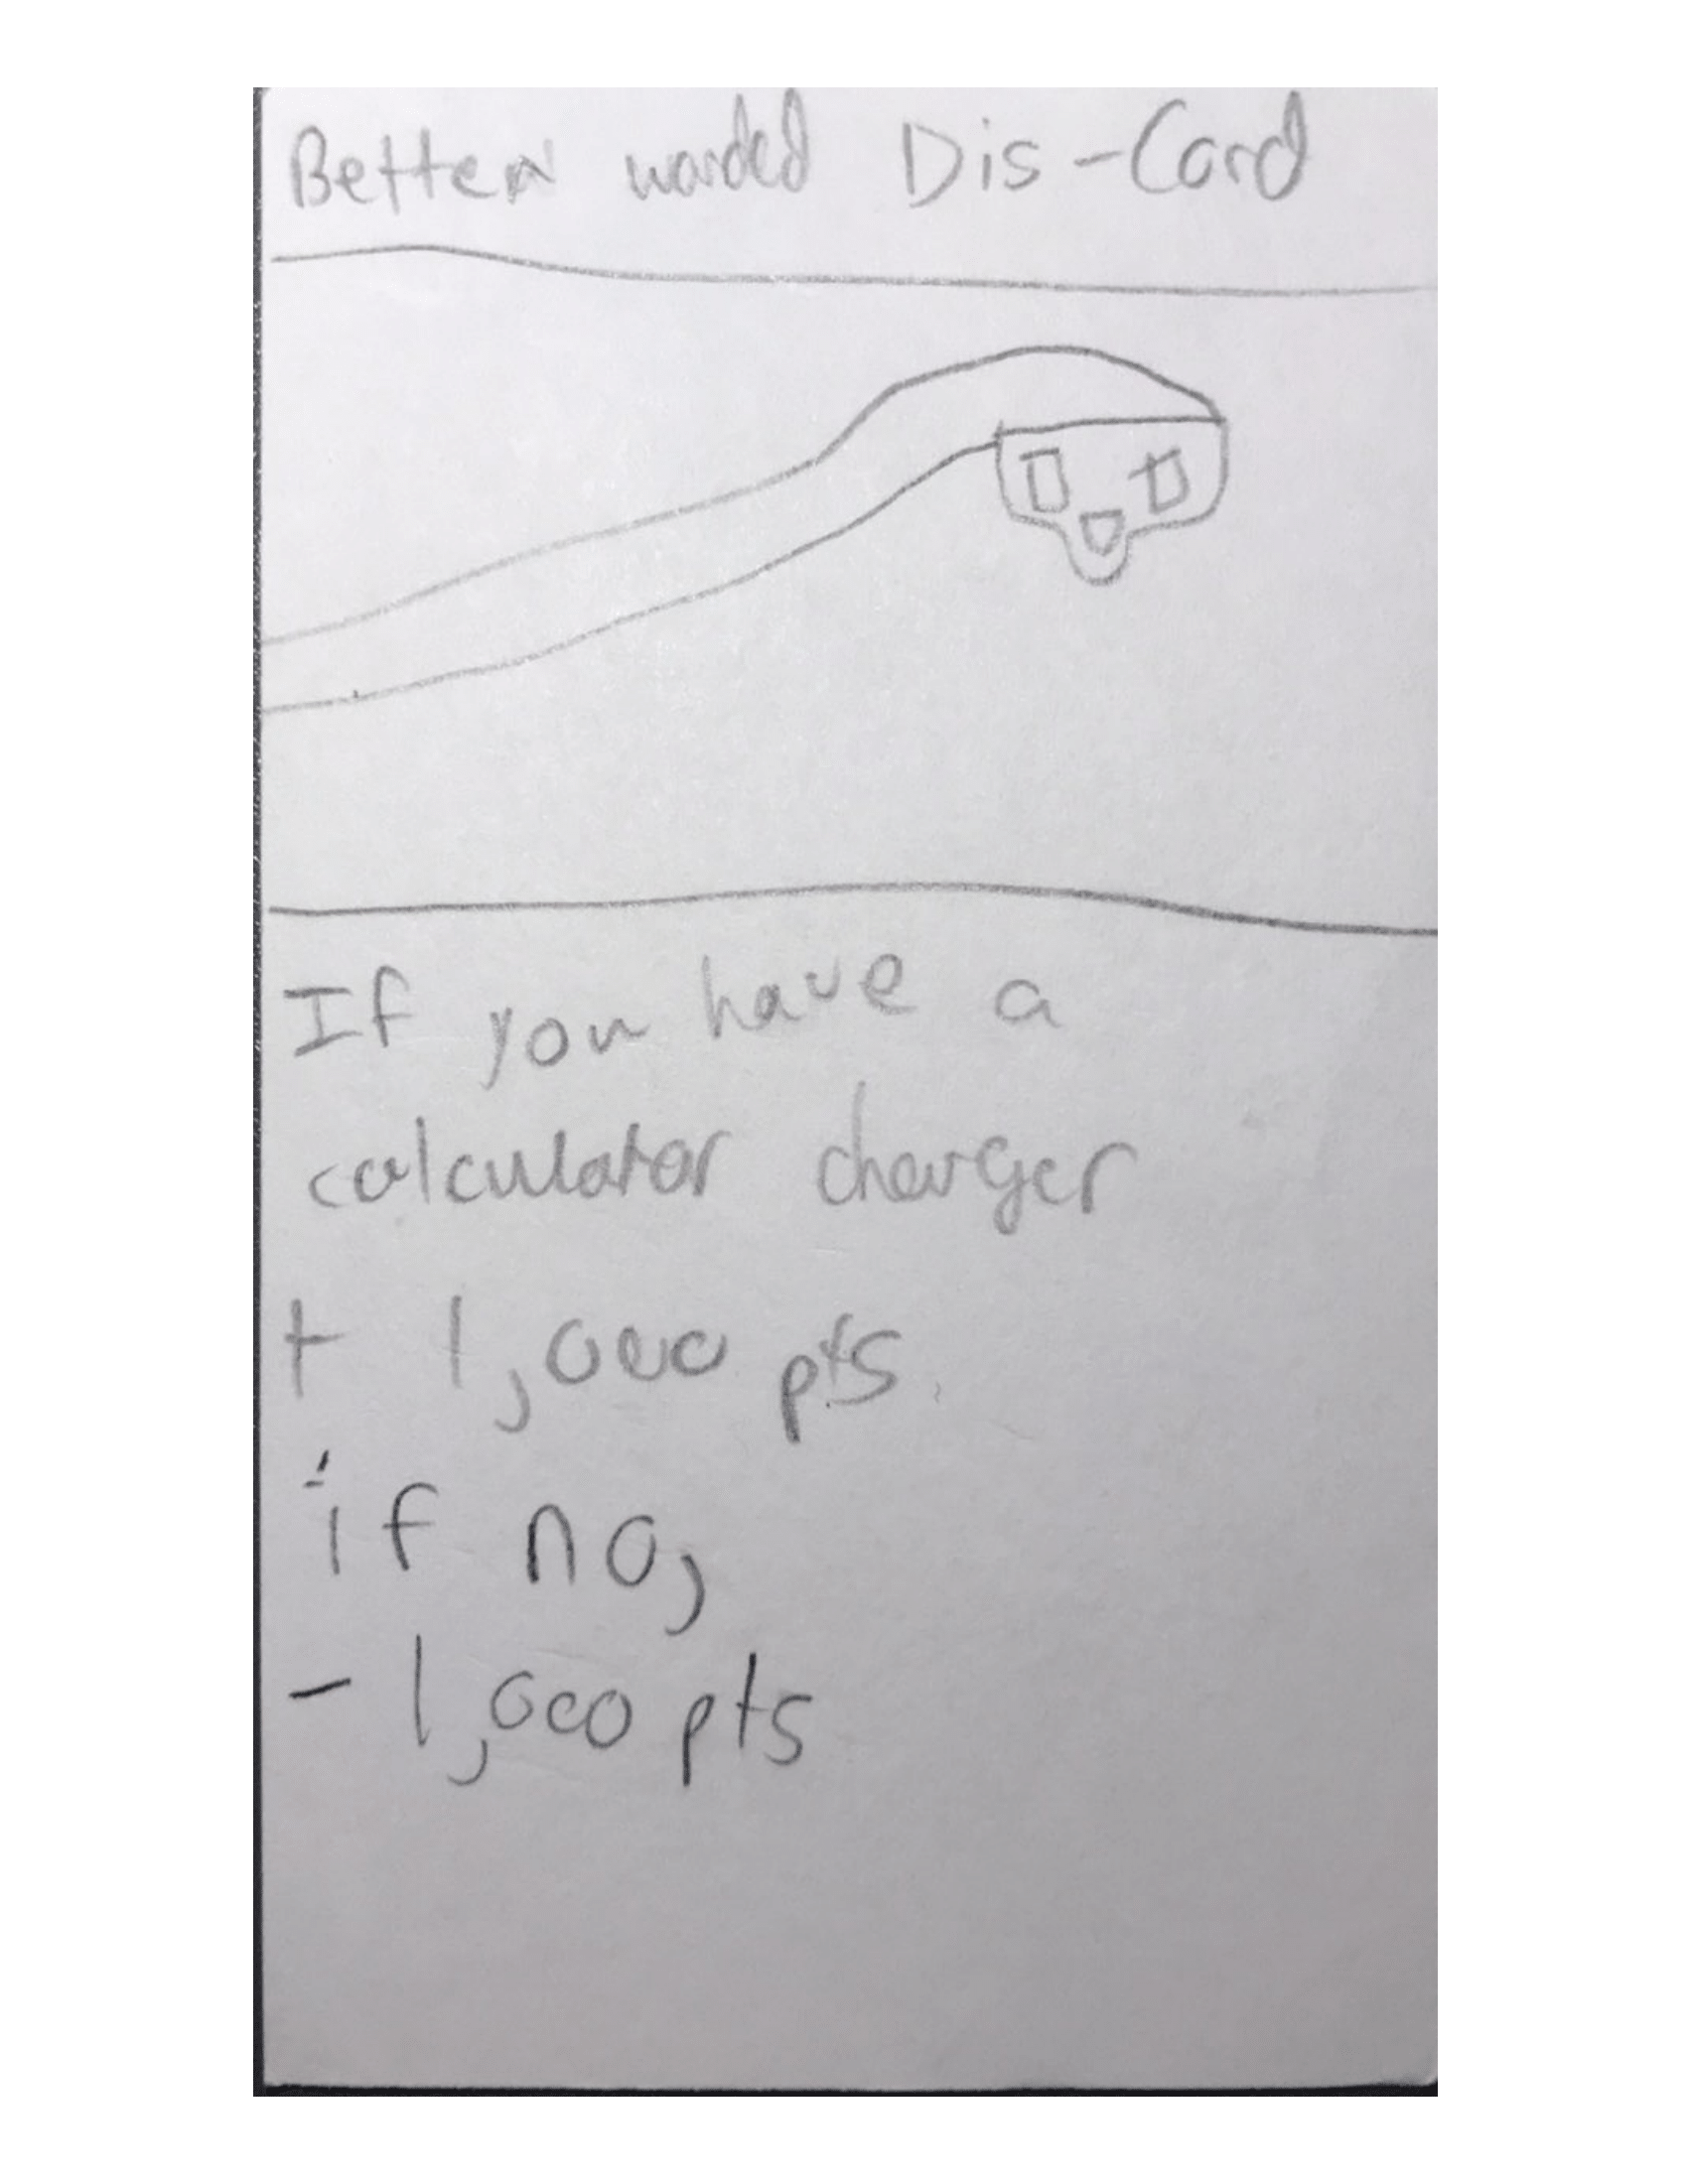 Better worded Dis-Cord
If you have a
calculator charger
+ 1,000 pts.
if no,
- 1,000 pts